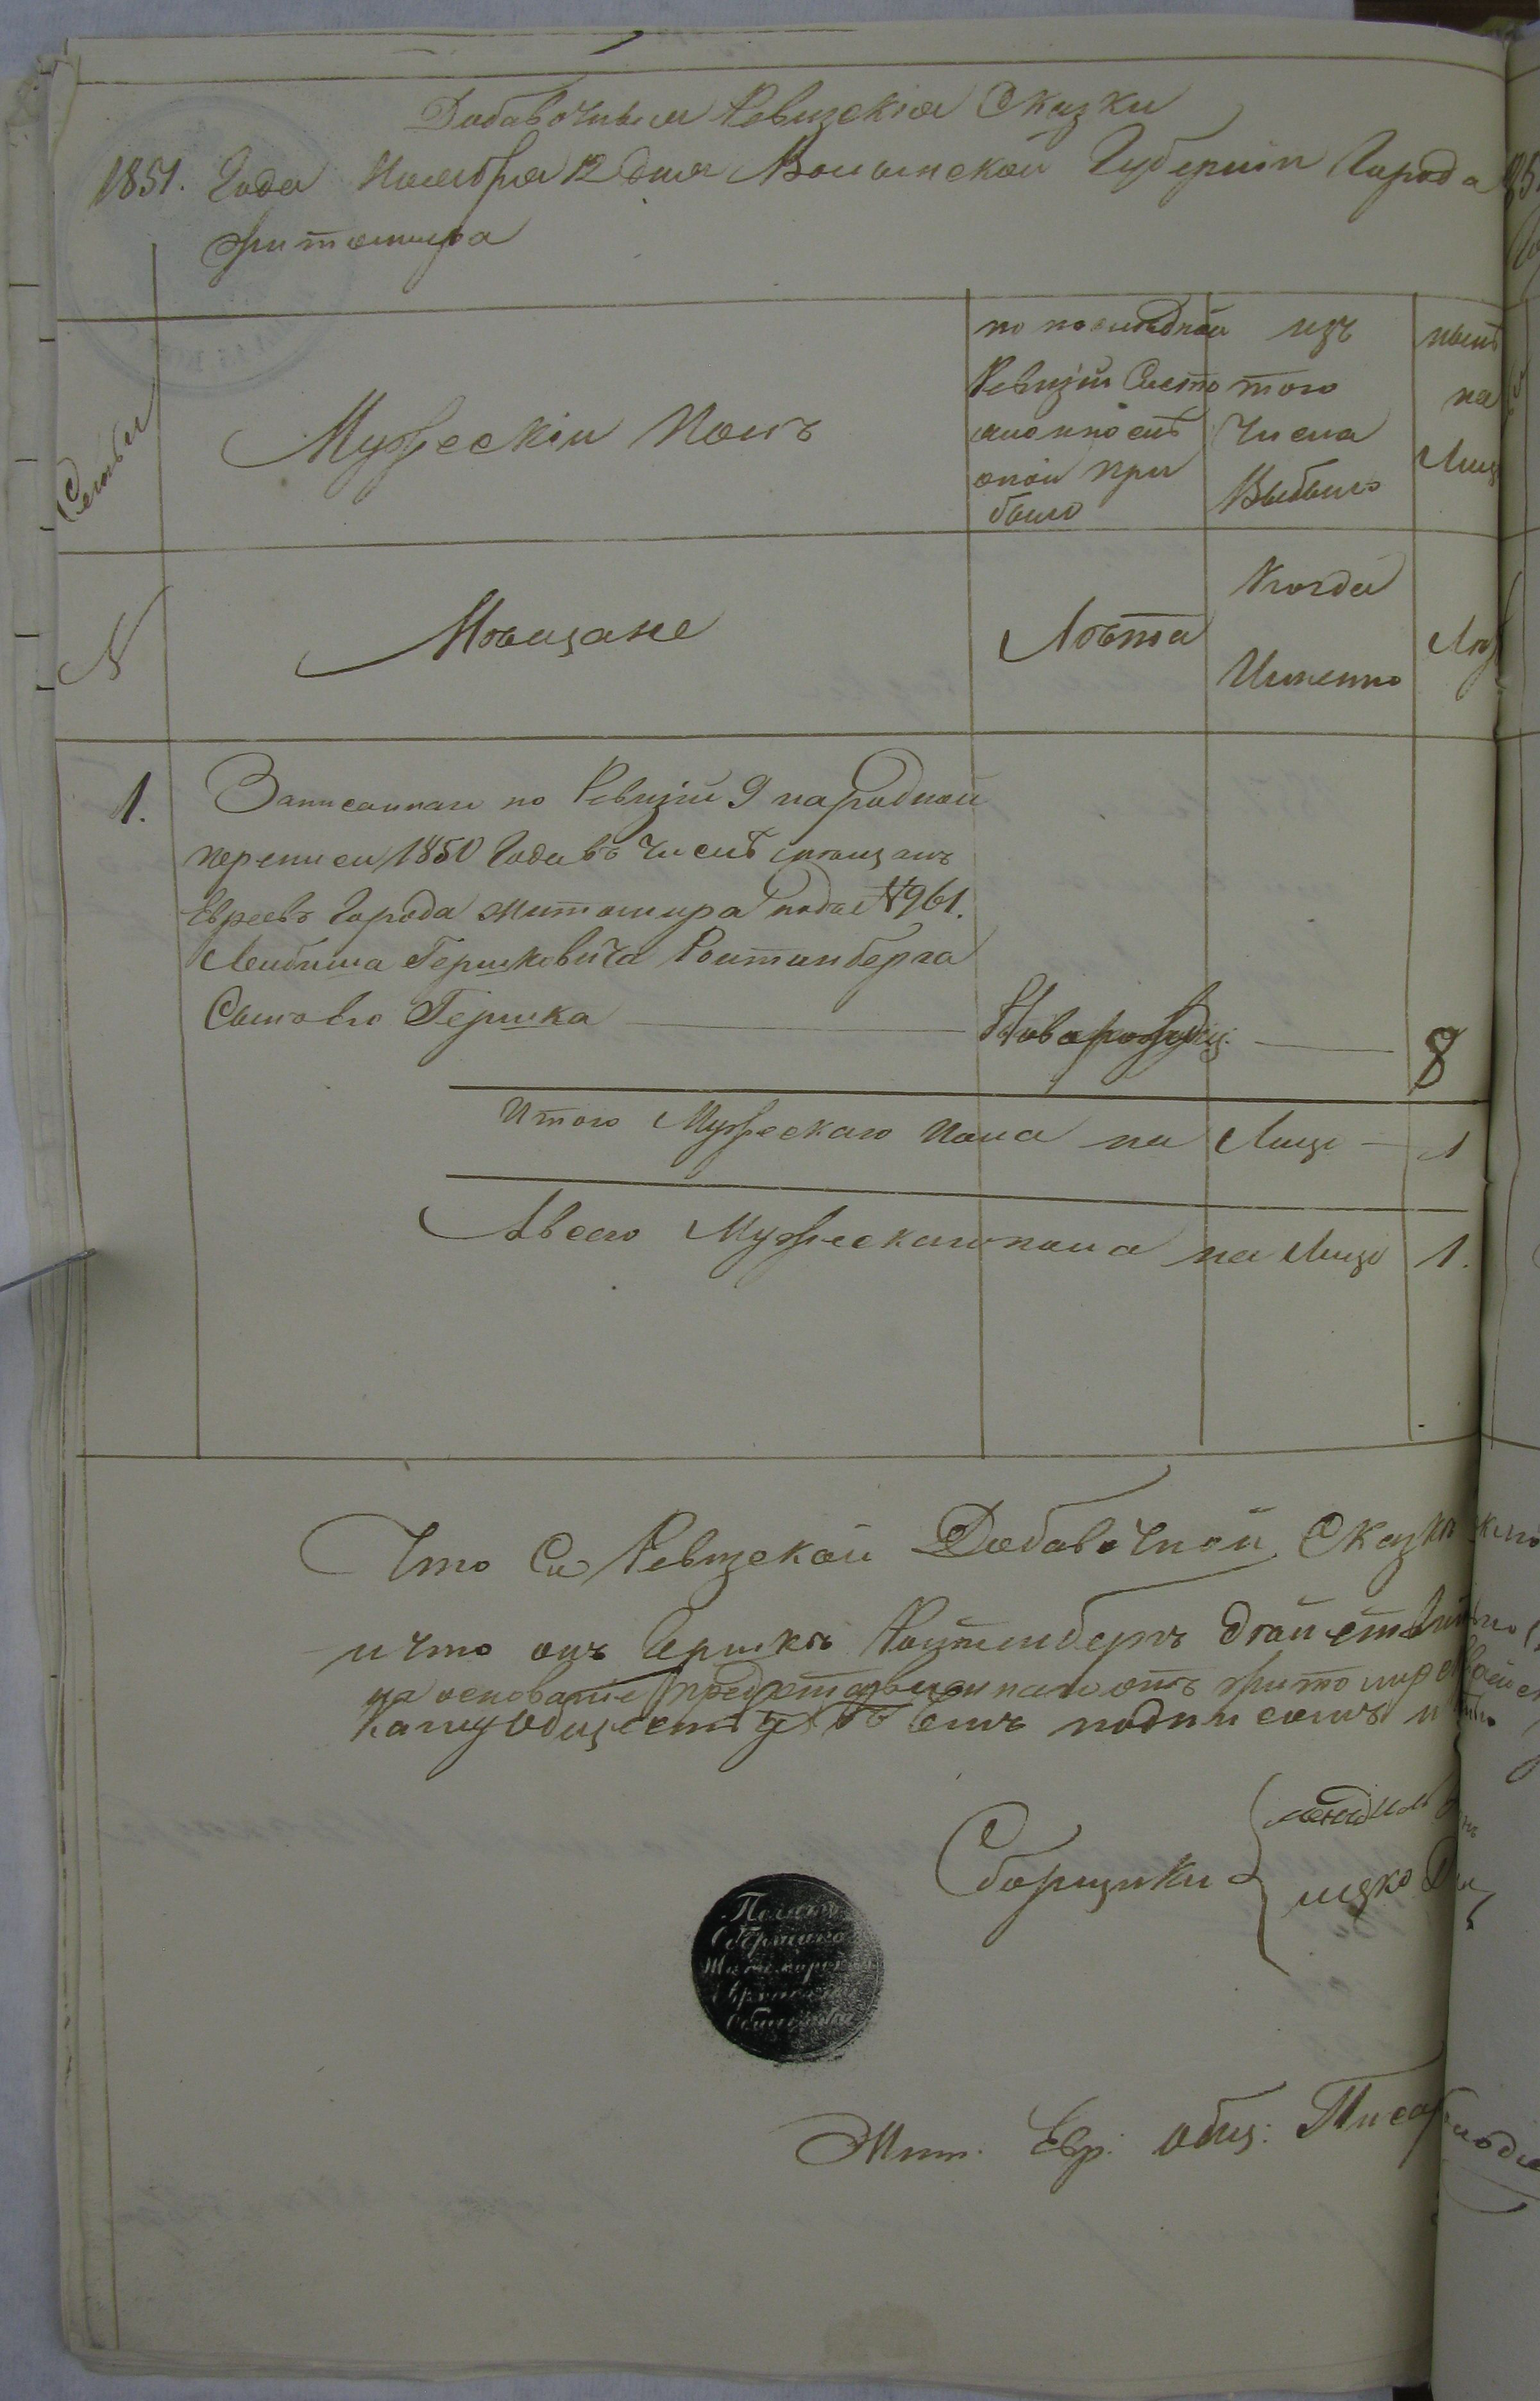 Добавочныя Ревизскія Сказки
1851. Года Ноября 12 дня Волынской Губерніи Города
Житомира
Семьи
Мужескій Полъ
по последней
Ревизіи Состо
яло и после
оной при
было
изъ
того
Числа
Выбыло
ныне
на
Лицо
N
Мещане
Лета
Когда
Именно
1.
Записанная по Ревизіи 9 народной
переписи 1850 Года въ Числе мещанъ
Евреевъ Города Житомира подъ N 961.
Лейбиша Гершковича Ройтенберга
Сынъ его Гершка Новорожд: 8
Итого Мужескаго Пола на Лицо 1
А всего Мужескаго пола на Лицо 1.
Что Ся Ревизской Добавочной Сказки
и что онъ Гершко Ройтенбергъ
на основаніе представленнаго отъ
подписомъ и
Сборщики
ицко
Печать
Сборщиковъ
Житомирскаго
Еврейскаго
Общества
Жит. Евр. общ: Писарь